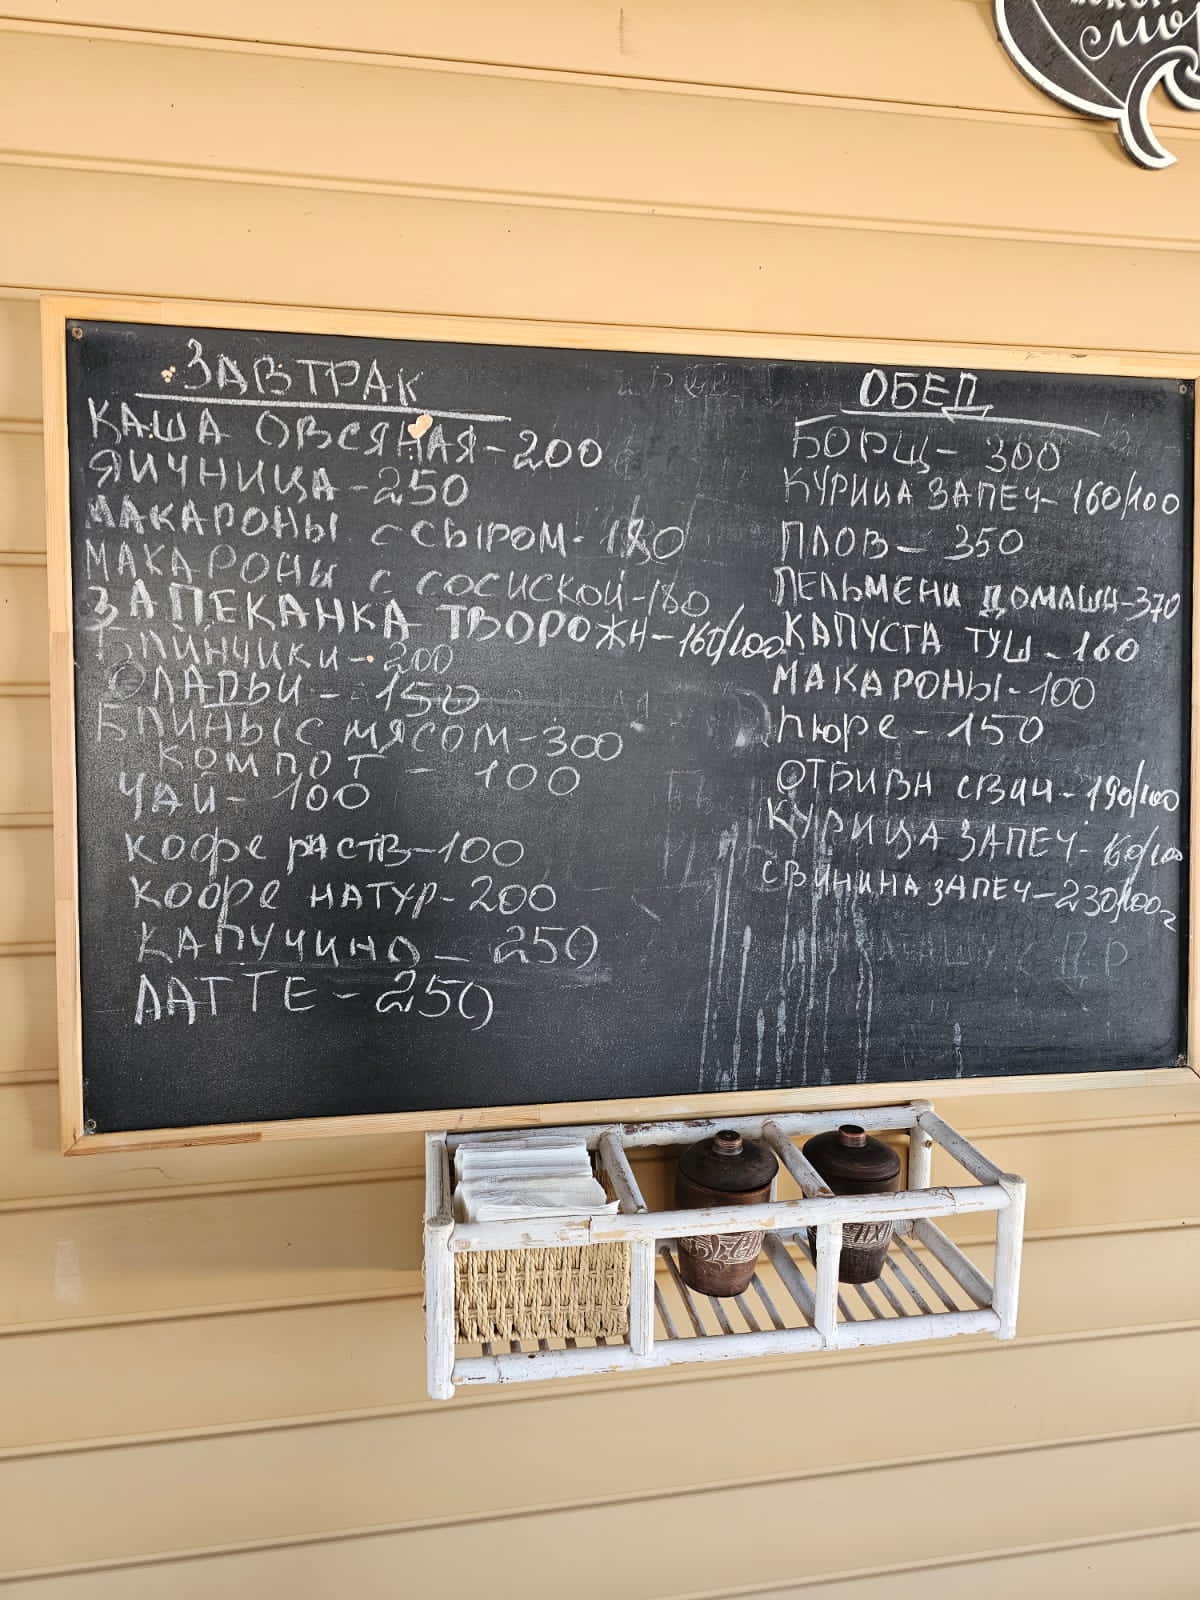 смор
ЗАВТРАК
КАША ОВСЯНАЯ-200
ЯИЧНИЦА-250
МАКАРОНЫ с СЫРОМ-180
МАКАРОНЫ с СОСИСКОЙ-180
ЗАПЕКАНКА ТВОРОЖН-160/100
БЛИНЧИКИ-200
ОЛАДЬИ-150
БЛИНЫ С МЯСОМ-300
КОМПОТ-100
ЧАЙ-100
КОФЕ РАСТВ-100
КОФЕ НАТУР-200
КАПУЧИНО-250
ЛАТТЕ-250
ОБЕД
БОРЩ-300
КУРИЦА ЗАПЕЧ-160/100
ПЛОВ-350
ПЕЛЬМЕНИ ДОМАШН-370
КАПУСТА ТУШ-160
МАКАРОНЫ-100
ПЮРЕ-150
ОТБИВН СВИН-190/100
КУРИЦА ЗАПЕЧ-160/100
СВИНИНА ЗАПЕЧ-230/100г